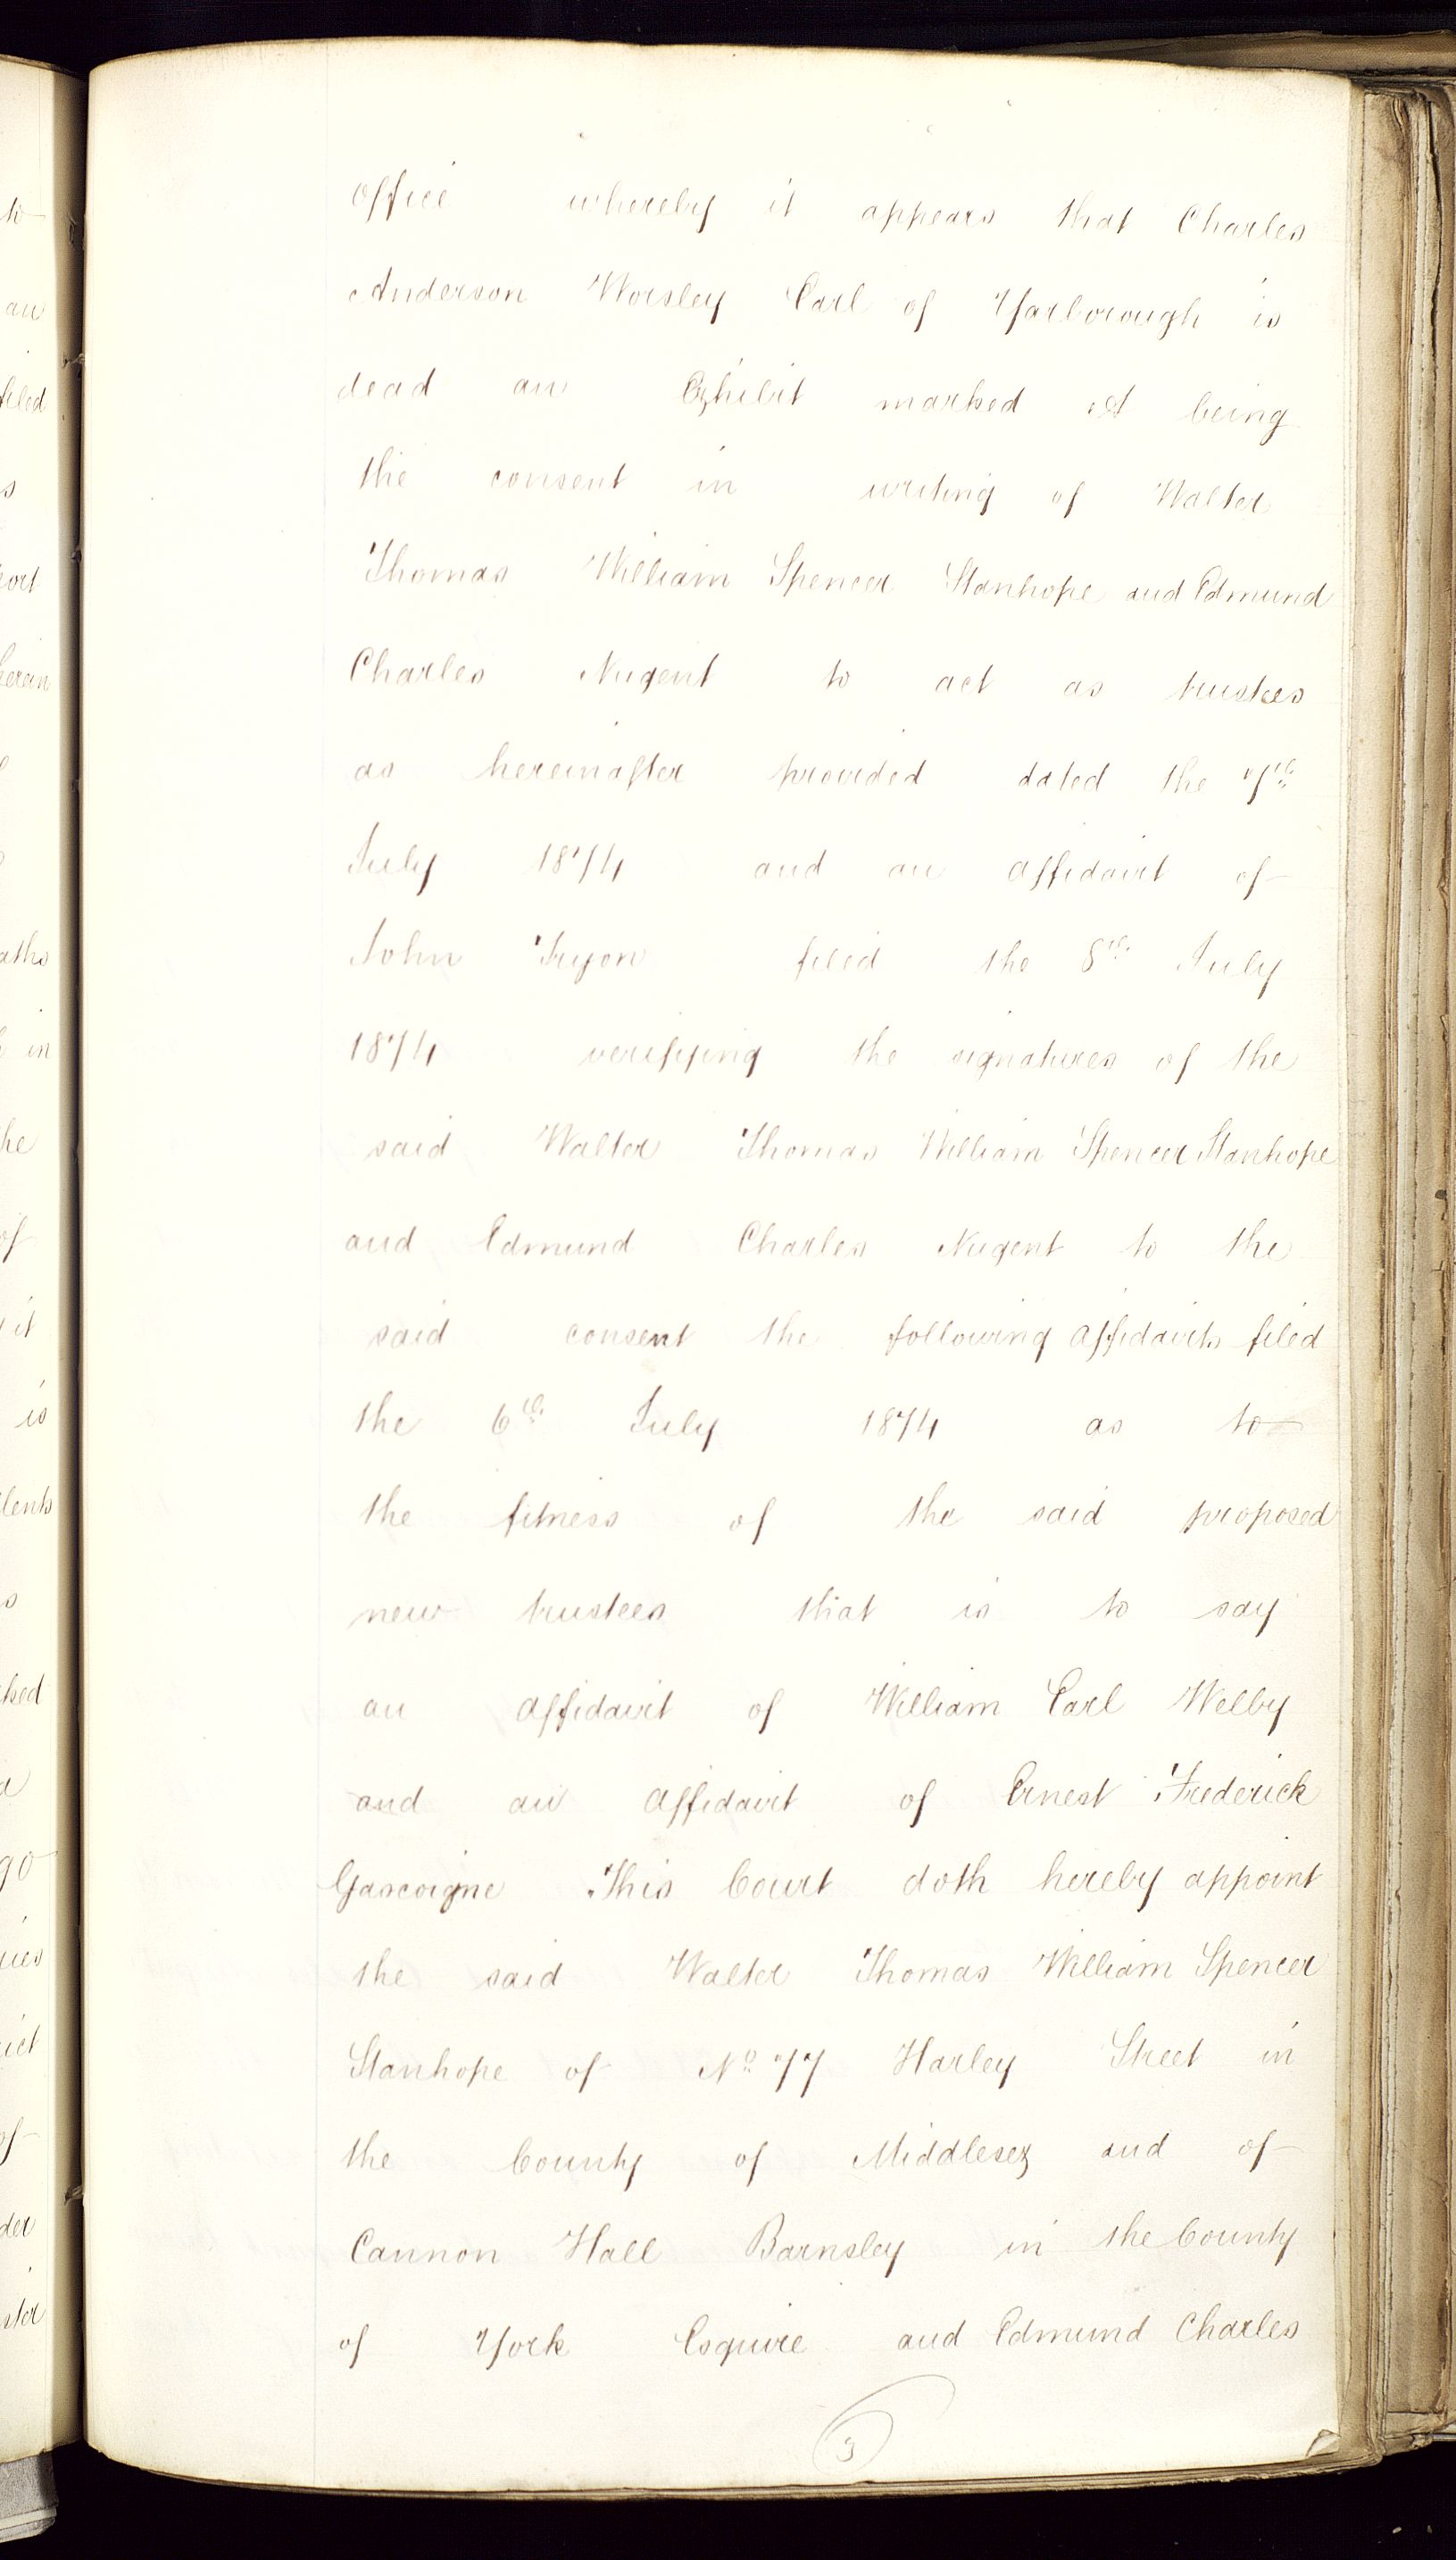 office whereby it appears that Charles
Anderson Worsley Earl of Yarborough is
dead an Exhibit marked A being
the consent in writing of Walter
Thomas William Spencer Stanhope and Edmund
Charles Nugent to act as trustees
as hereinafter provided dated the 7th
July 1874 and an affidavit of
John Tryon filed the 8th July
1874 verifying the signatures of the
said Walter Thomas William Spencer Stanhope
and Edmund Charles Nugent to the
said consent the following affidavits filed
the 6th July 1874 as to
the fitness of the said proposed
new trustees that is to say
an affidavit of William Earl Welby
and an affidavit of Ernest Frederick
Gascoigne This Court doth hereby appoint
the said Walter Thomas William Spencer
Stanhope of No 77 Harley Street in
the County of Middlesex and of
Cannon Hall Barnsley in the County
of York Esquire and Edmund Charles
3